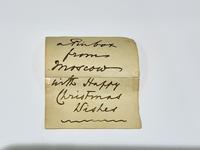 a Pin box
from
Moscow
with Happy
Christmas
Wishes